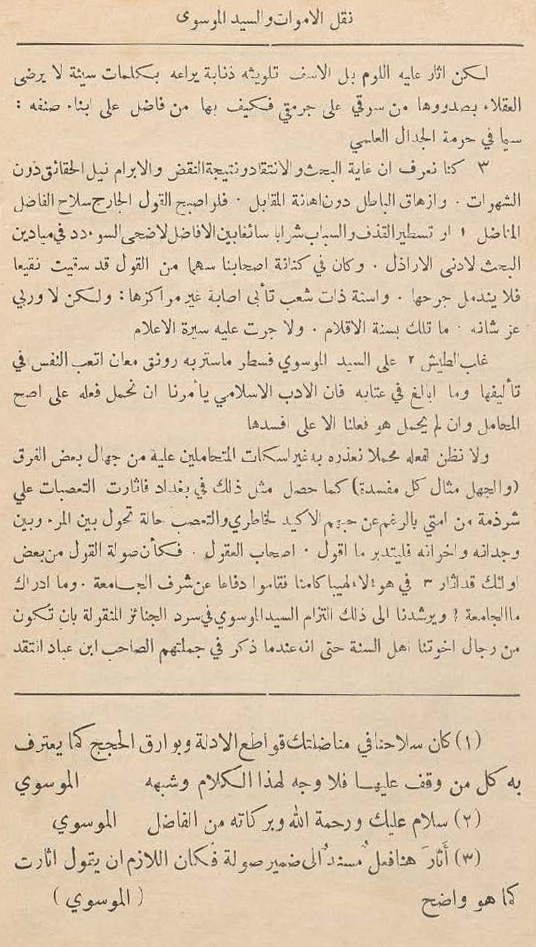 نقل الاموات والسيد الموسوى
لكن اثار عليه اللوم بل الاسف تلويثه ذنابة يراعه بكلمات سيئة لا يرضى
العقلاء بصدورها من سوقي على جرمقي فكيف بها من فاضل على ابناء صنفه :
سيما في حرمة الجدال العلمي
٣ كنا نعرف ان غاية البحث والانتقاد ونتيجة النقض والابرام نيل الحقائق دون
الشهوات . وازهاق الباطل دون اهانة المقابل . فلو اصبح القول الجارح سلاح الفاضل
المناضل ١ او تسطير القذف والسباب شرابا سائغا بين الافاضل لاضحى السوءدد في ميادين
البحث لادنى الاراذل . وكان في كنانة اصحابنا سهما من القول قد سقيت نقيعا
فلا يندمل جرحها . واسنة ذات شعب تأبى اصابة غير مراكزها : ولكن لا وربي
عز شانه . ما تلك بسنة الاقلام . ولا جرت عليه سيرة الاعلام
غاب الطيش ٢ على السيد الموسوي فسطر ماستر به رونق معان اتعب النفس في
تأليفها وما ابالغ في عتابه فان الادب الاسلامي يأمرنا ان نحمل فعله على اصح
المحامل وان لم يحمل هو فعلنا الا على افسدها
ولا نظن لفعله محملا نعذره به غير اسكات المتحاملين علية من جهال بعض الفرق
(والجهل مثال كل مفسدة) كما حصل مثل ذلك في بغداد فاثارت التعصبات علي
شرذمة من امتي بالرغم عن حبهم الاكيد لخاطري والتعصب حالة تحول بين المرء وبين
وجدانه واخوانه فليتدبر ما اقول . اصحاب العقول . فكأن صولة القول من بعض
اولئك قد اثار ٣ في هؤلاء لهيبا كامنا فقاموا دفاعا عن شرف الجامعة . وما ادراك
ما الجامعة ? ويرشدنا الى ذلك التزام السيد الموسوي في سرد الجنائز المنقولة بان تكون
من رجال اخوتنا اهل السنة حتى انه عندما ذكر في جملتهم الصاحب ابن عباد انتقد
(١) كان سلاحنا في مناضلتك قواطع الادلة وبوارق الحجج كما يعترف
به كل من وقف عليها فلا وجه لهذا الكلام وشبهه الموسوي
(٢) سلام عليك ورحمة الله وبركاته من الفاضل الموسوي
(٣) أثارَ هنا فعلٌ مسندٌ الى ضمير صولة فكان اللازم ان يقول اثارت
كما هو واضح (الموسوي)